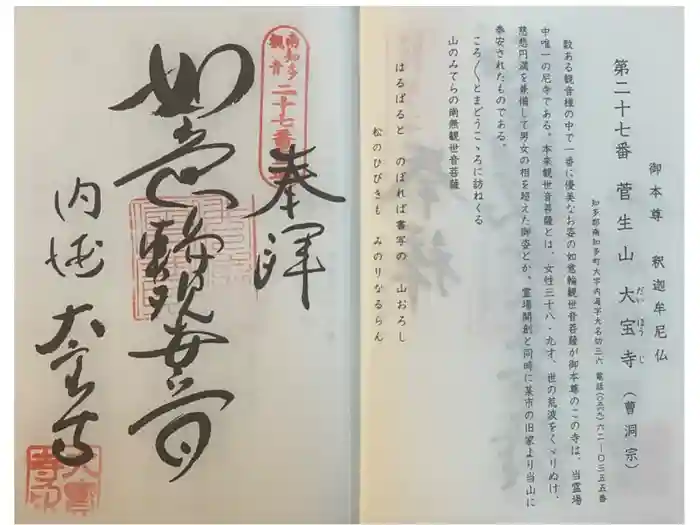 御本尊 釈迦牟尼仏
第二十七番 菅生山 大宝寺 (曹洞宗)
だい ほう じ
知多郡南知多町大字内海字大名切三六 電話(〇五六九)六二―〇三五五番
数ある観音様の中で一番に優美なお姿の如意輪観世音菩薩が御本尊のこの寺は、当霊場
中唯一の尼寺である。本来観世音菩薩とは、女性三十八・九才、世の荒波をくゞりぬけ、
慈悲円満を兼備して男女の相を超えた御姿とか。霊場開創と同時に某市の旧家より当山に
奉安されたものである。
ころ〳〵とまどうこゝろに訪ねくる
山のみてらの南無観世音菩薩
はるばると のぼれば書写の 山おろし
松のひびきも みのりなるらん
南知多
観音
二十七番
奉拝
如意輪観世音
内海 大宝寺